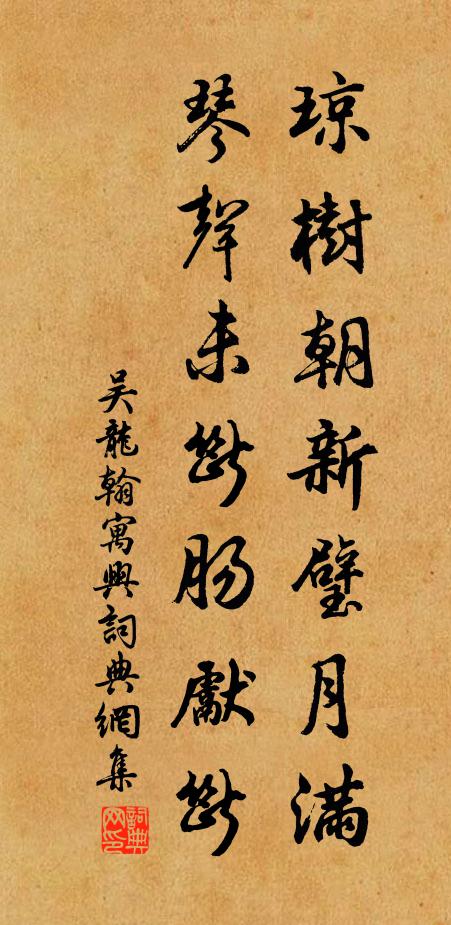 琼樹朝新璧月滿
琴聲未斷腸獻斷
吴龍翰寓興詞典網集
詞典网印